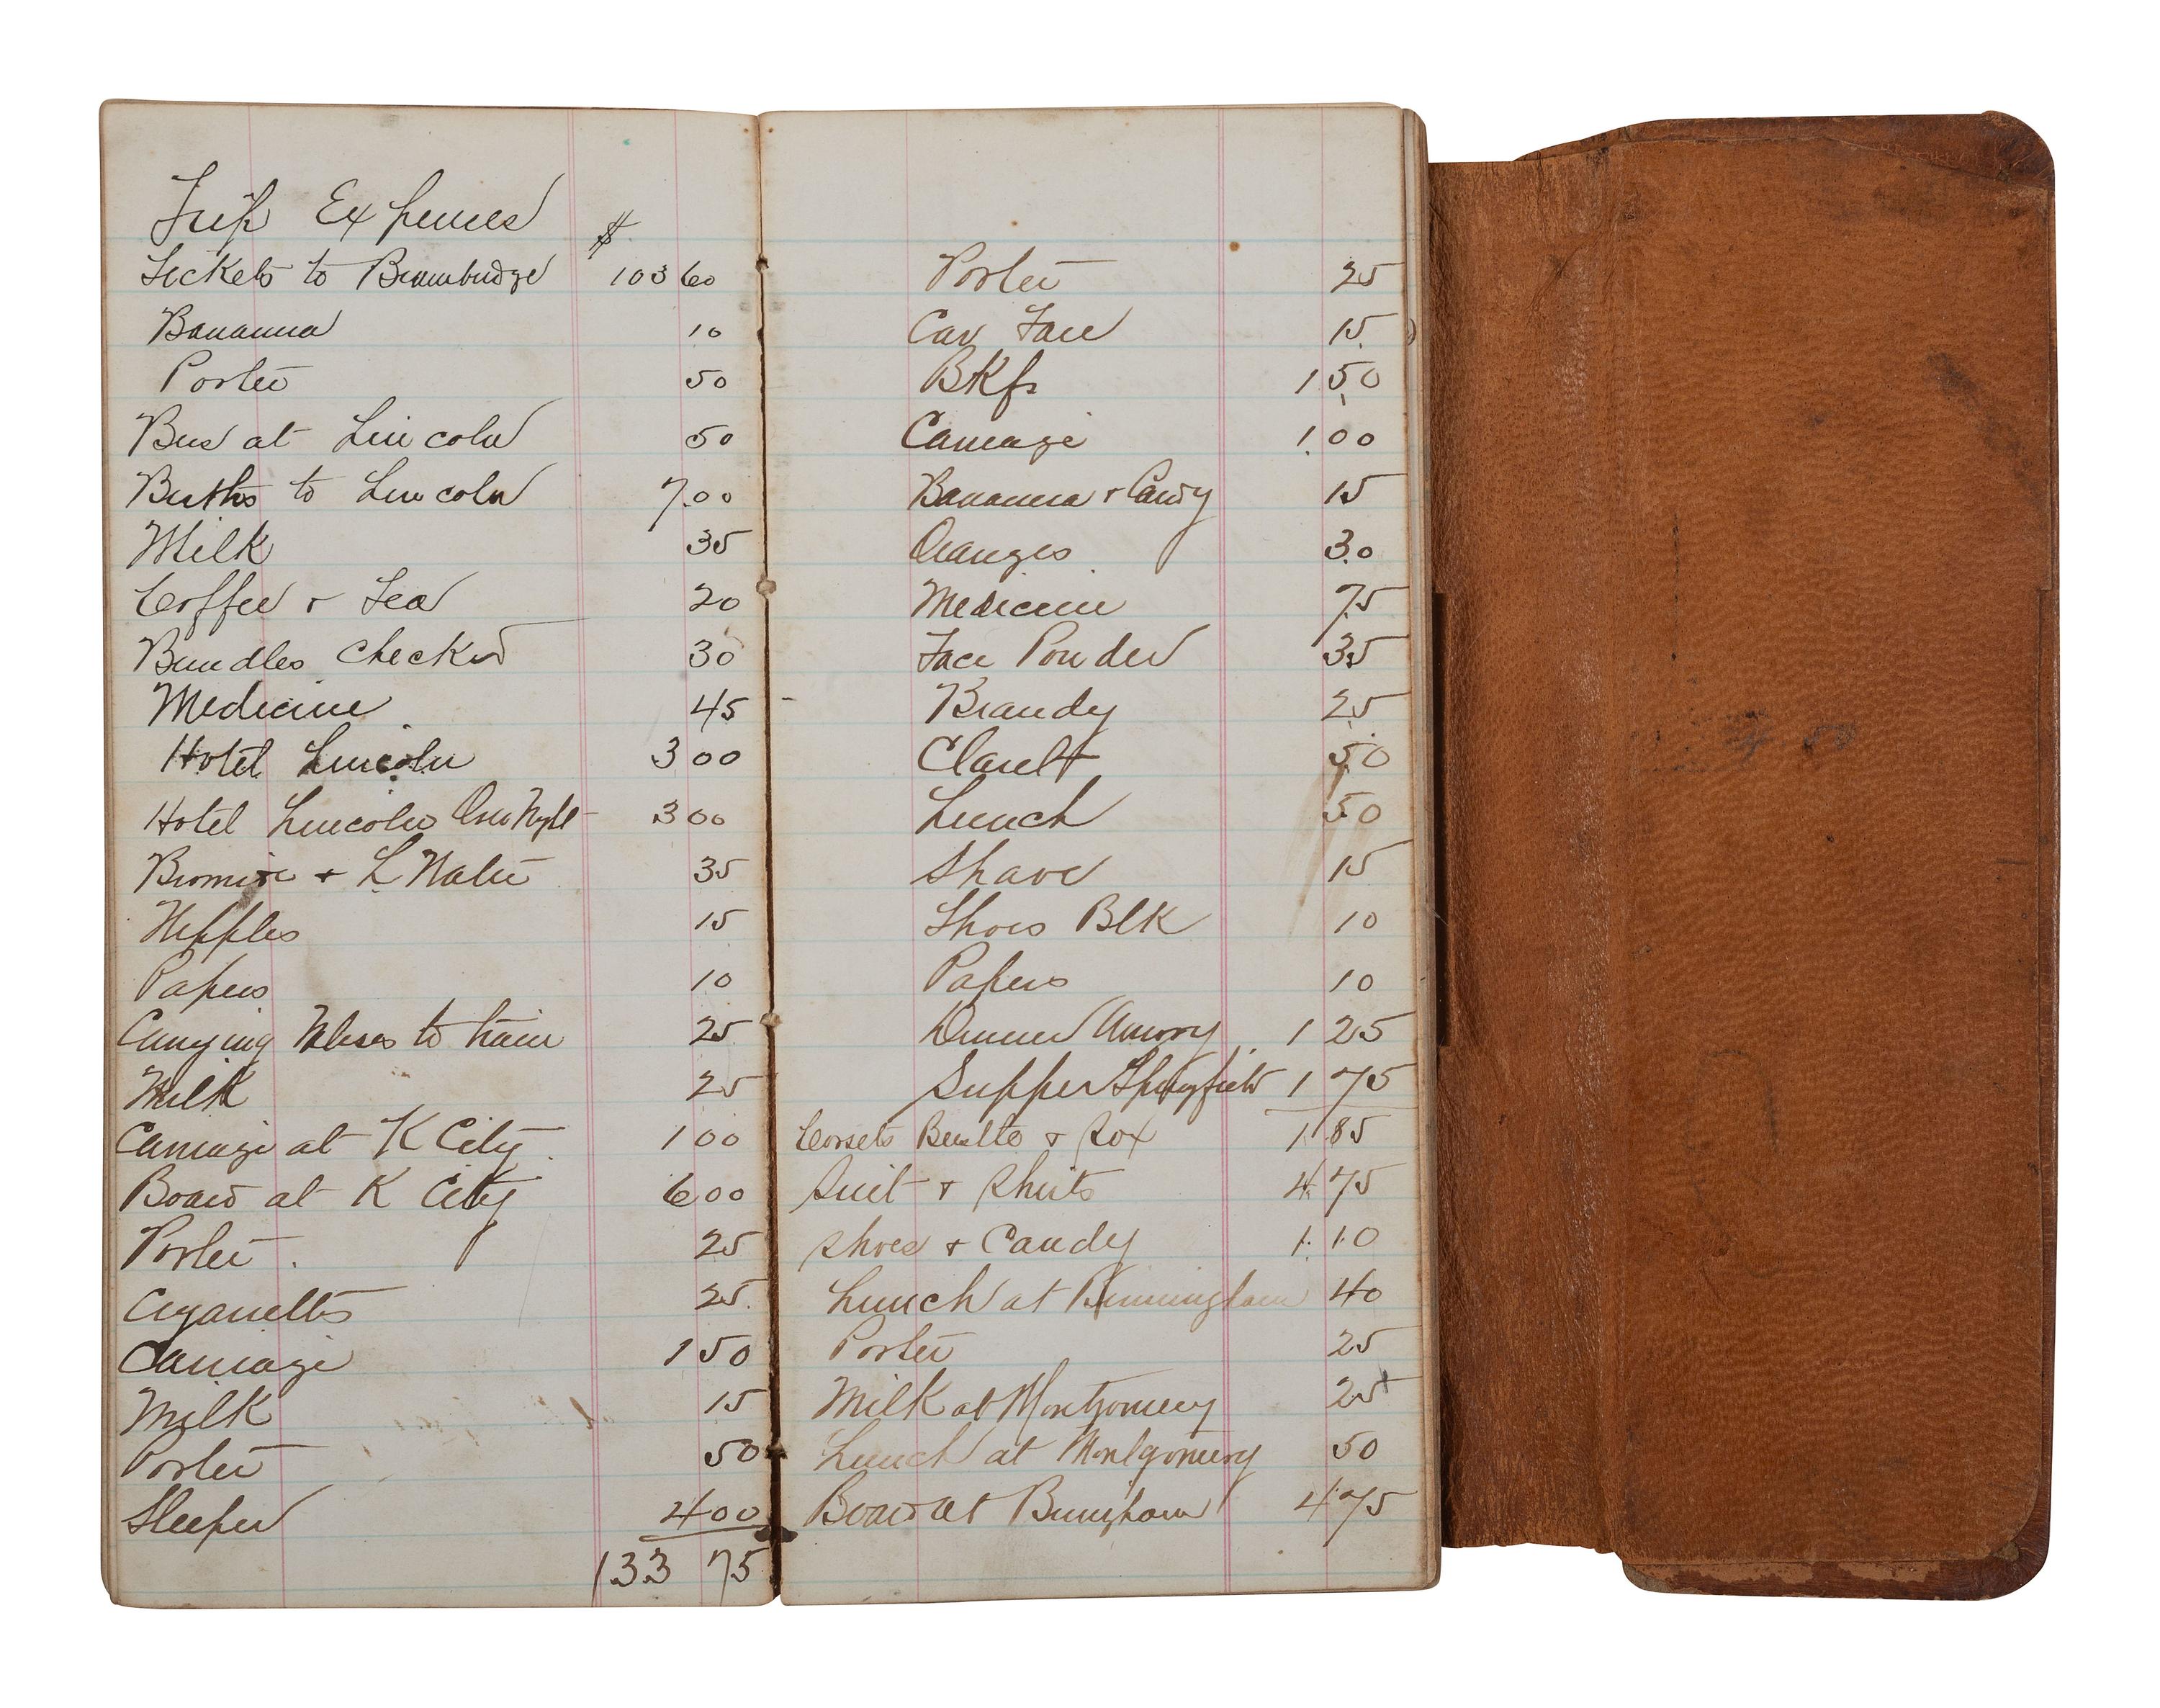 Trip Expenses
$
Tickets to Brainbridge 103 60
Bananna 10
Porter 50
Bus at Lincoln 50
Berths to Lincoln 7.00
Milk 35
Coffee + Tea 20
Bundles Checked 30
Medicine 45
Hotel Lincoln 3 00
Hotel Lincoln One Night 3 00
Bromide + L Water 35
Nipples 15
Papers 10
Carrying Valises to train 25
Milk 25
Carriage at K City 1 00
Board at K City 6 00
Porter 25
Cigaretts 25
Carriage 1 50
Milk 15
Porter 50
Sleeper 4 00
133 75
Porter 25
Car Fare 15
Bkfs 1 50
Carriage 1.00
Bananna + Candy 15
Oranges 30
Medicine 75
Face Powder 35
Brandy 25
Clarett 50
Lunch 50
Shave 15
Shoes Blk 10
Papers 10
Dinner Amory 1 25
Supper Springfield 1 75
Corsets Bustle + Sox 1 85
Suit + Shirts 4 75
Shoes + Candy 1.10
Lunch at Birmingham 40
Porter 25
Milk at Montgomery 25
Lunch at Montgomery 50
Board at 4 75